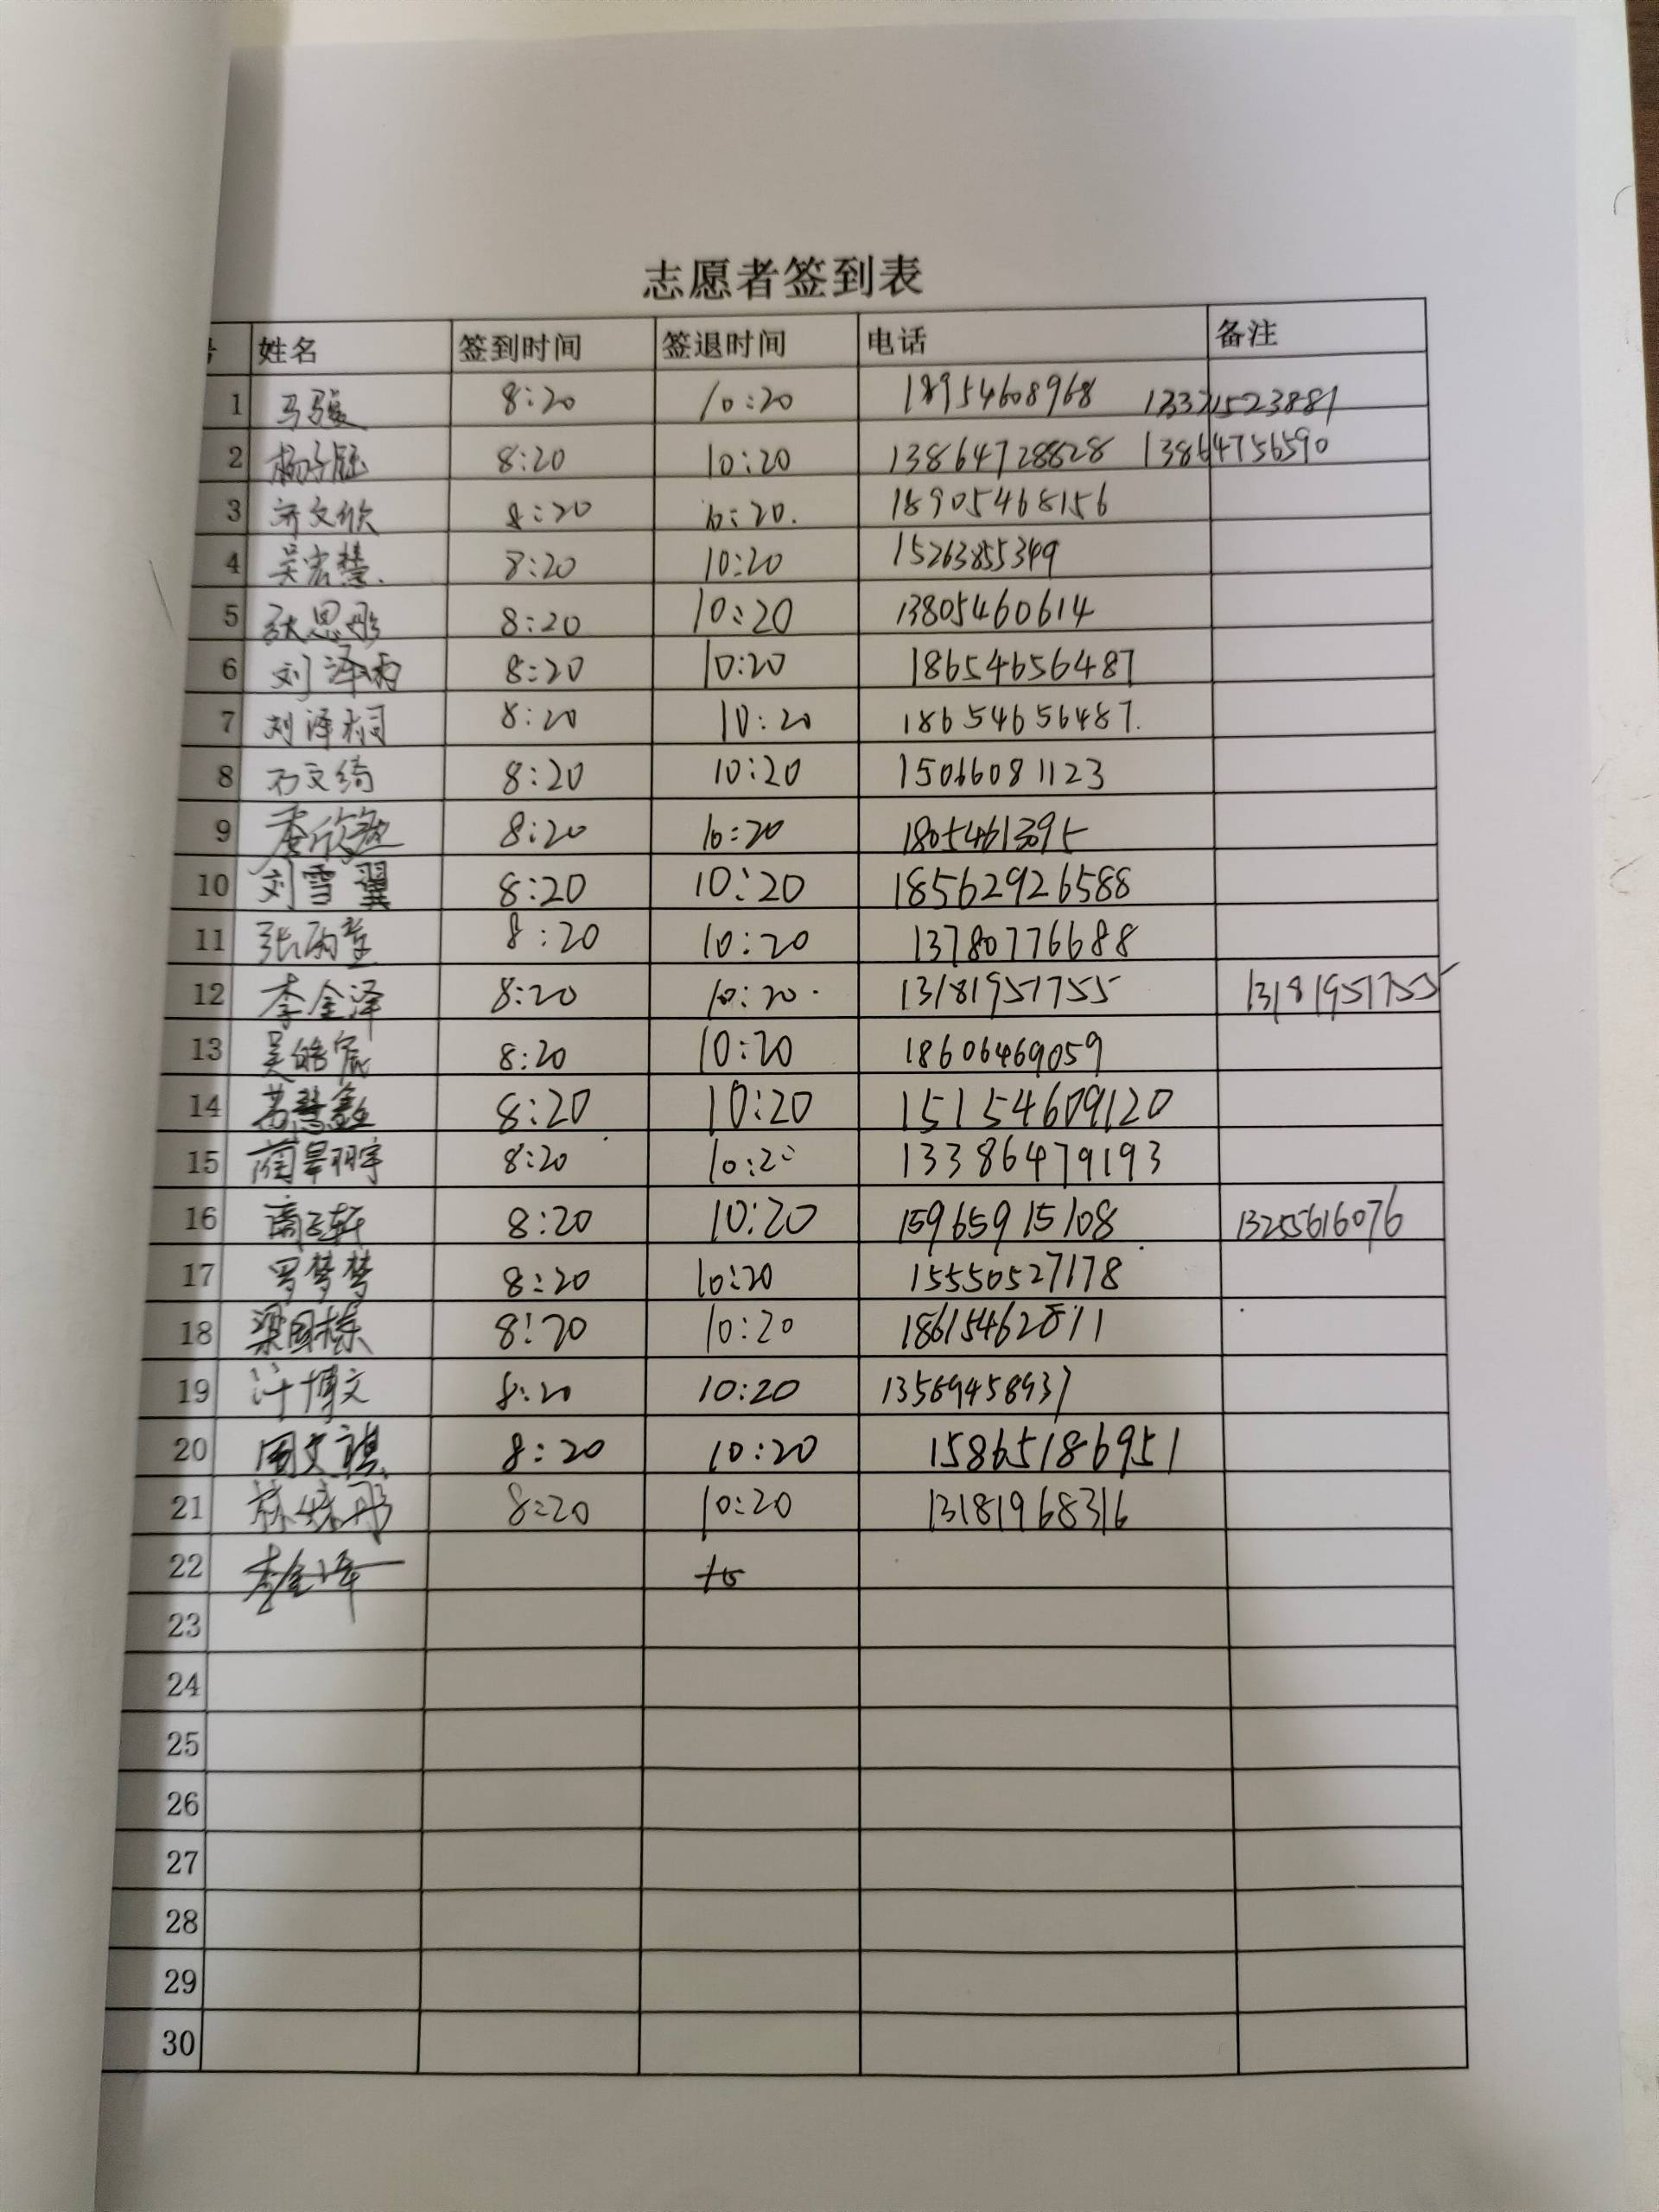 志愿者签到表
姓名 签到时间 签退时间 电话 备注
1 马骏 8:20 10:20 18954608968 13371523881
2 杨子钰 8:20 10:20 13864728828 13864756590
3 齐文欣 8:20 10:20. 18905468156
4 吴宏慧. 8:20 10:20 15263855349
5 张思彤 8:20 10:20 13805460614
6 刘泽雨 8:20 10:20 18654656487
7 刘泽桐 8:20 10:20 18654656487.
8 石文绮 8:20 10:20 15066081123
9 8:20 10:20
10 刘雪翼 8:20 10:20 18562926588
11 张雨童 8:20 10:20 13780776688
12 李金泽 8:20 10:20. 13181951755 13181951755
13 吴皓宸 8:20 10:20 18606469059
14 8:20 10:20 15154609120
15 8:20 10:20 13386479193
16 8:20 10:20 15965915108 13255616076
17 罗梦梦 8:20 10:20 15550527178
18 梁国栋 8:20 10:20
19 许博文 8:20 10:20 13569458937
20 周文祺 8:20 10:20 15865186951
21 林姝彤 8:20 10:20 13181968316
22
23
24
25
26
27
28
29
30